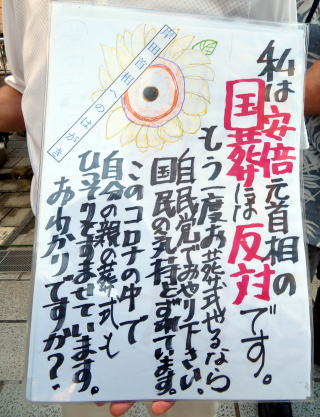 岸田首相へのはがき
私は安倍元首相の
国葬は反対です。
もう一度お葬式やるなら
自民党でおやり下さい、
国民の気持とずれています。
このコロナの中で
自分の親の葬式も
ひっそりとすませています。
おわかりですか？